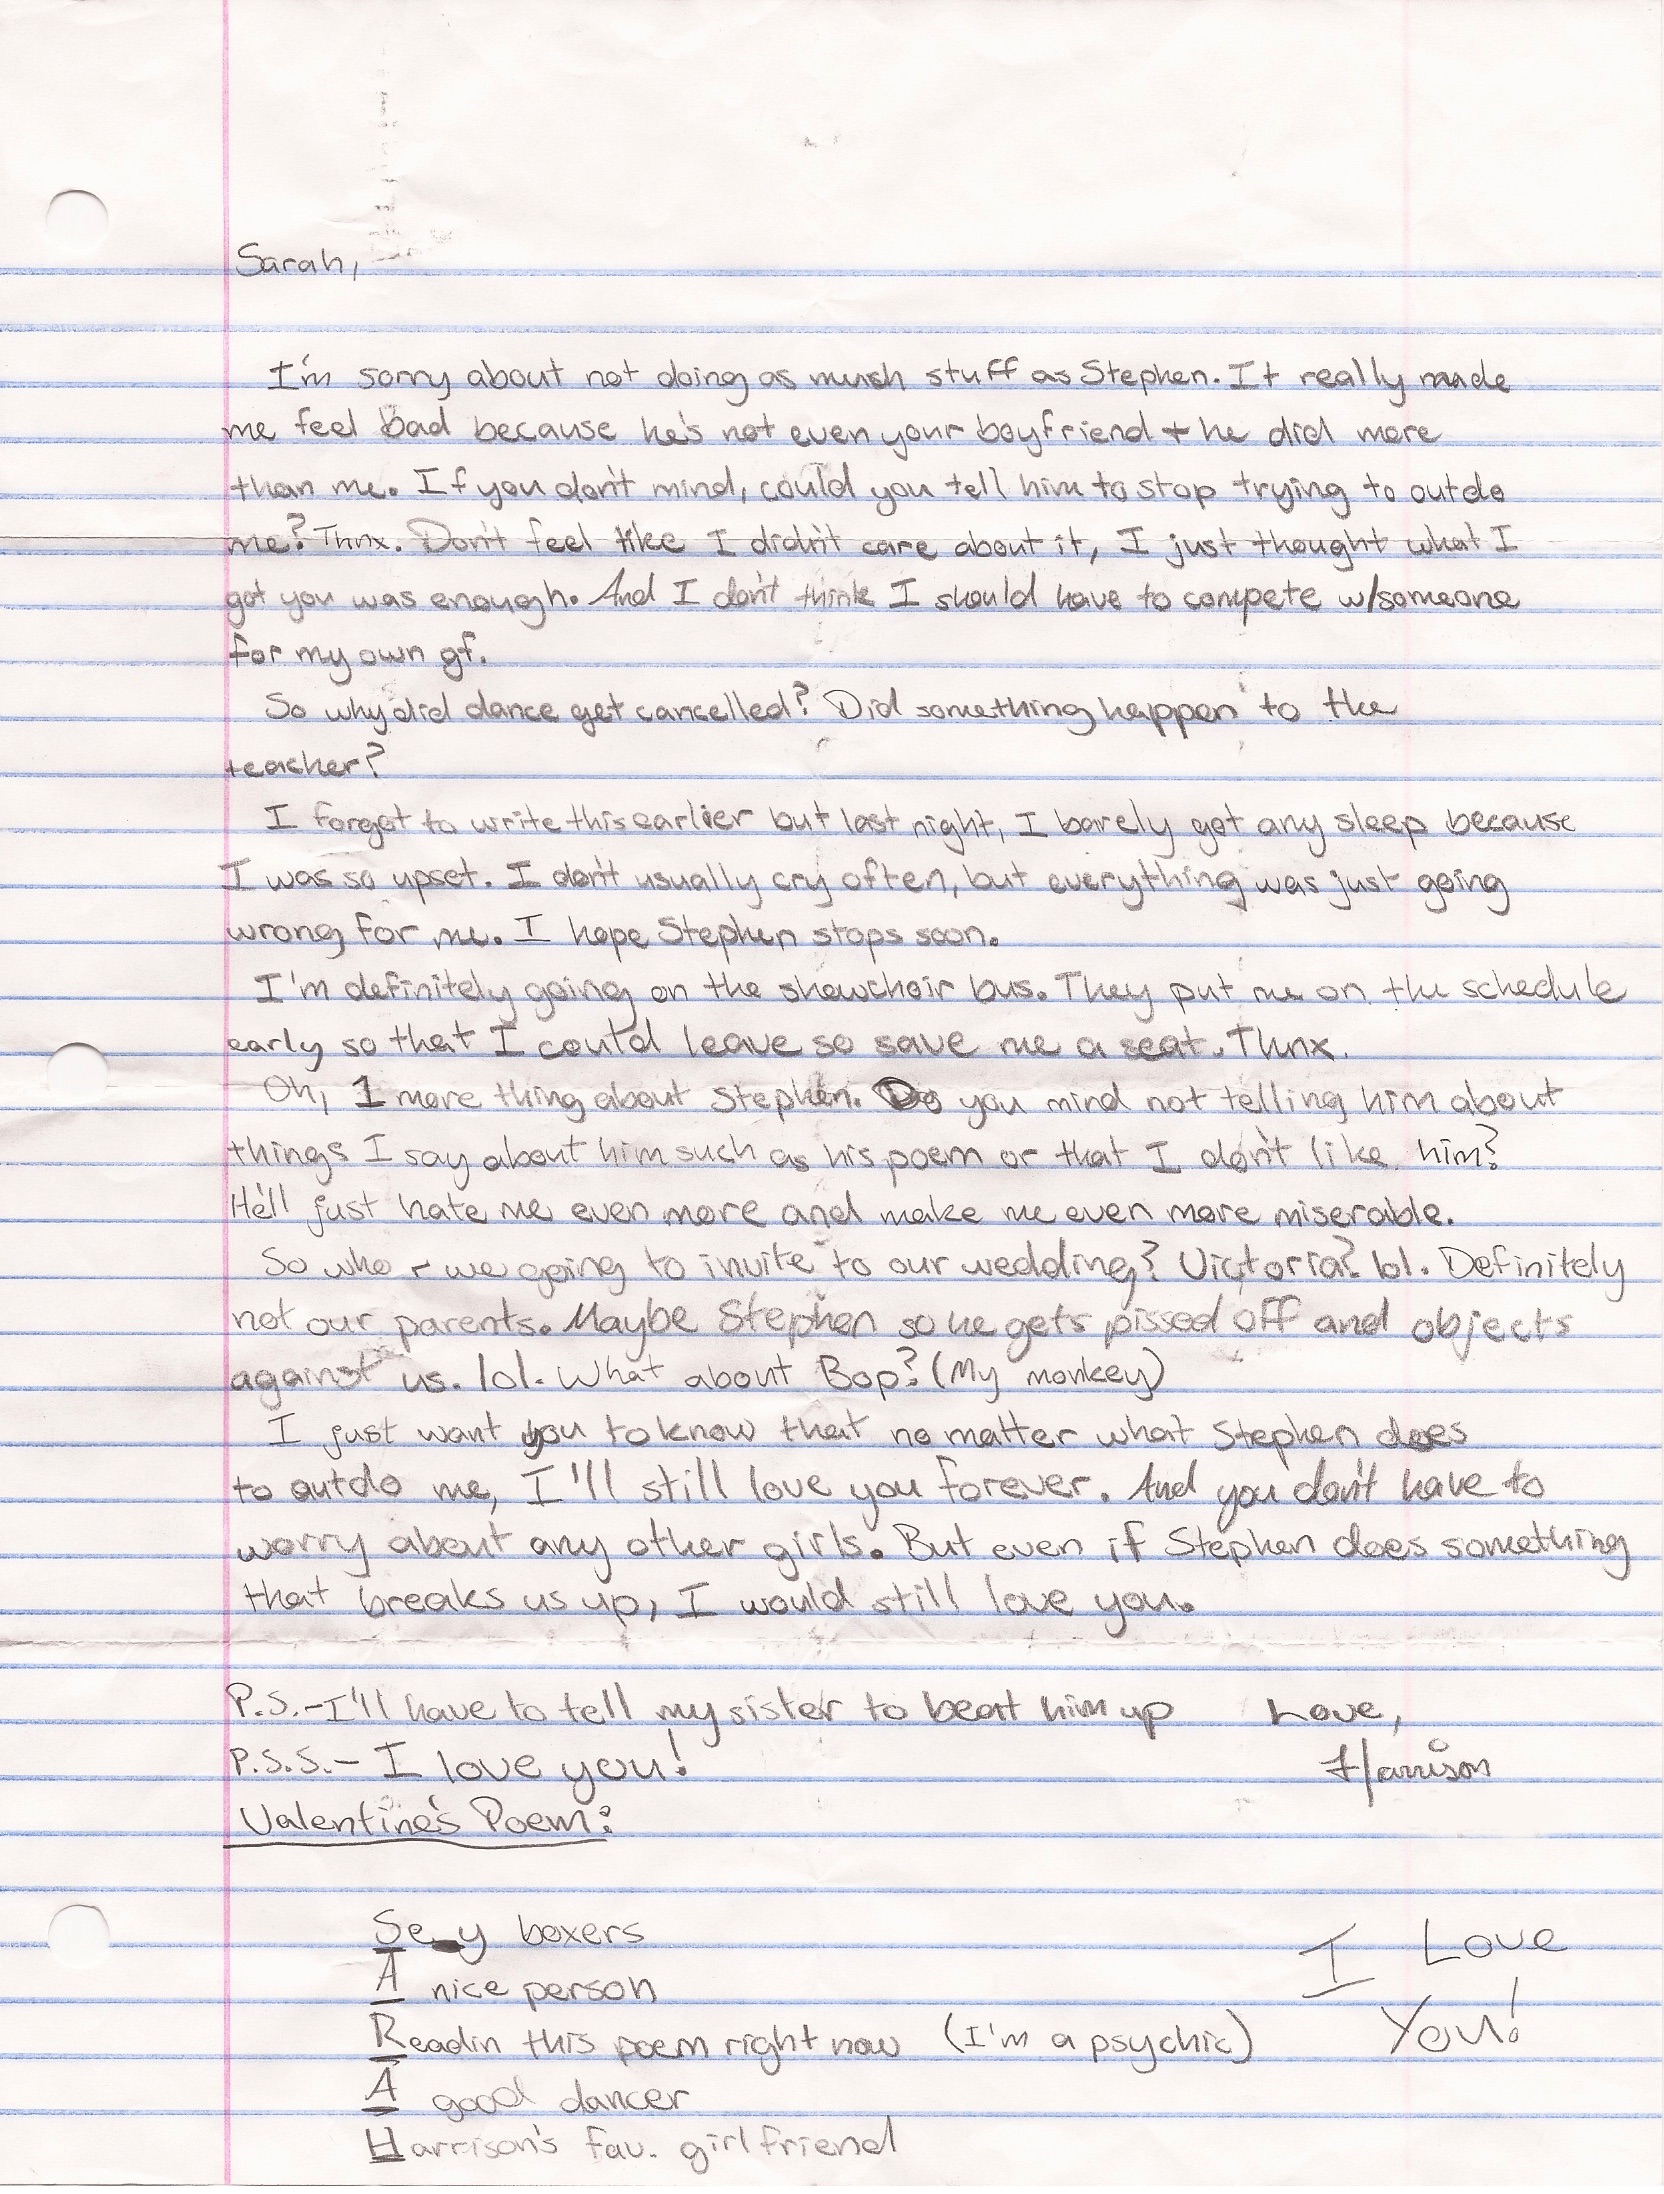 Sarah,
I'm sorry about not doing as much stuff as Stephen. It really made
me feel bad because he's not even your boyfriend + he did more
than me. If you don't mind, could you tell him to stop trying to outdo
me? Thnx. Don't feel like I didn't care about it, I just thought what I
got you was enough. And I don't think I should have to compete w/someone
for my own gf.
So why did dance get cancelled? Did something happen to the
teacher?
I forgot to write this earlier but last night, I barely got any sleep because
I was so upset. I don't usually cry often, but everything was just going
wrong for me. I hope Stephen stops soon.
I'm definitely going on the showchoir bus. They put me on the schedule
early so that I could leave so save me a seat. Thnx.
Oh, 1 more thing about Stephen. Do you mind not telling him about
things I say about him such as his poem or that I don't like him?
He'll just hate me even more and make me even more miserable.
So who r we going to invite to our wedding? Victoria? lol. Definitely
not our parents. Maybe Stephen so he gets pissed off and objects
against us. lol. What about Bop? (My monkey)
I just want you to know that no matter what Stephen does
to outdo me, I'll still love you forever. And you don't have to
worry about any other girls. But even if Stephen does something
that breaks us up, I would still love you.
P.S.-I'll have to tell my sister to beat him up Love,
P.S.S.- I love you! Harrison
Valentine's Poem:
Se y boxers
A nice person
Readin this poem right now (I'm a psychic)
A good dancer
Harrison's fav. girlfriend
I Love
You!